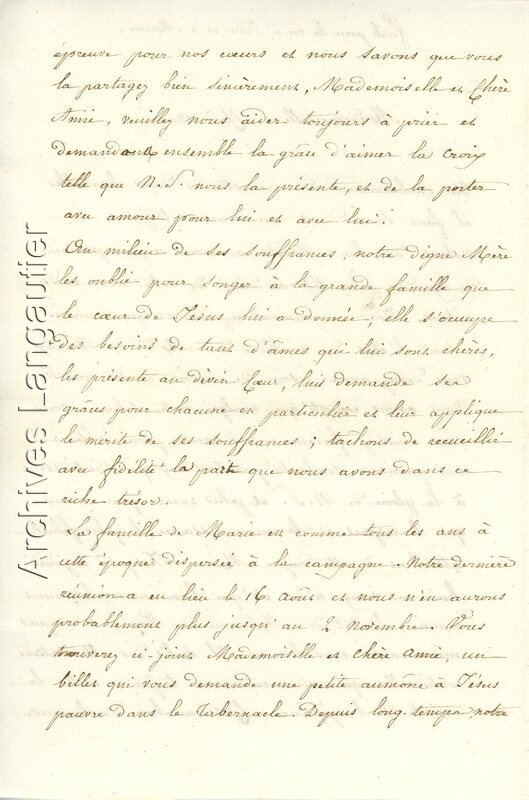 épreuve pour nos cœurs et nous savons que vous
la partagez bien sincèrement, Mademoiselle et Chère
Amie, veuillez nous aider toujours à prier et
demandant ensemble la grâce d'aimer la croix
telle que N.S. nous la présente, et de la porter
avec amour pour lui et avec lui.
Au milieu de ses souffrances, notre digne Mère
les oublie pour songer à la grande famille que
le cœur de Jésus lui a donnée; elle s'occupe
des besoins de tant d'âmes qui lui sont chères,
les présente au divin Cœur, lui demande ses
grâces pour chacune en particulier et leur applique
le mérite de ses souffrances; tâchons de recueillir
avec fidélité la part que nous avons dans ce
riche trésor.
La famille de Marie est comme tous les ans à
cette époque dispersée à la campagne. Notre dernière
réunion a eu lieu le 16 Août et nous n'en aurons
probablement plus jusqu'au 2 novembre. Vous
trouverez ci-joint Mademoiselle et chère Amie, un
billet qui vous demande une petite aumône à Jésus
pauvre dans le Tabernacle. Depuis long-temps notre
Archives Langautier